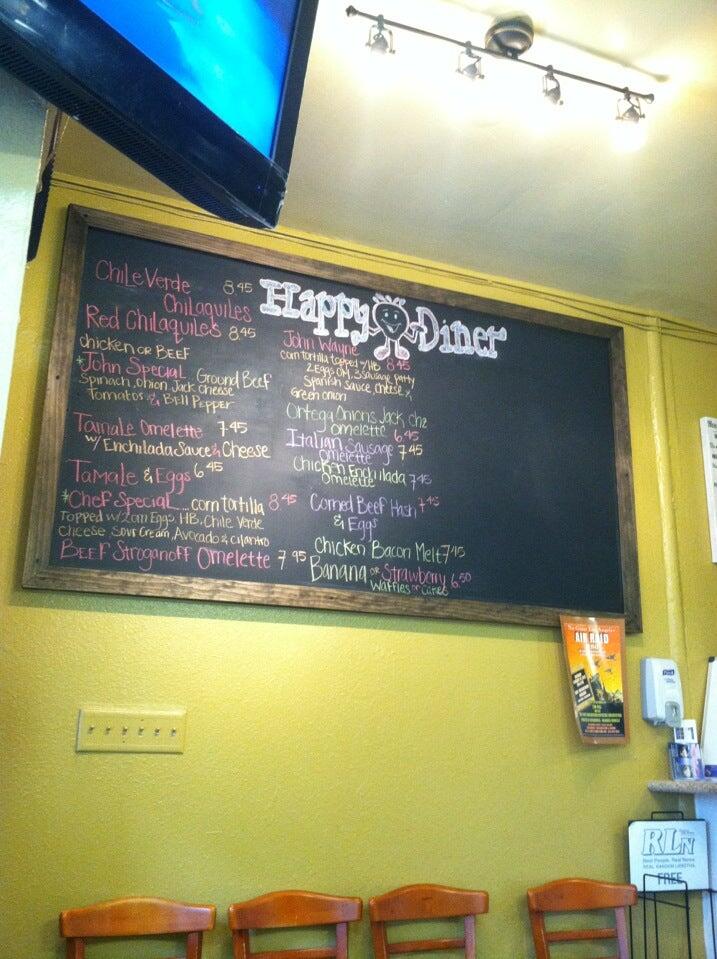 Chile Verde 8.45
Chilaquiles
Red Chilaquiles 8.45
chicken or Beef
*John Special Ground Beef
Spinach, onion Jack cheese
Tomatos & Bell Pepper
Tamale Omelette 7.45
w/ Enchilada Sauce & Cheese
Tamale & Eggs 6.45
*Chef Special.... corn tortilla 8.45
Topped w/ 2 om Eggs, HB, Chile Verde
cheese, Sour Cream, Avocado & cilantro
Beef Stroganoff Omelette 7.95
Happy Diner
John Wayne 8.45
corn tortilla topped w/ HB
2 Eggs OM, 3 Sausage patty
Spanish sauce, cheese &
Green onion
Ortega Onions Jack chz
omelette 6.45
Italian Sausage 7.45
omelette
Chicken Enchilada
omelette 7.45
Corned Beef Hash 7.45
& Eggs
Chicken Bacon Melt 7.45
Banana or Strawberry 6.50
Waffles or Cakes
AIR RAID
RLn
Real People, Real News
FREE